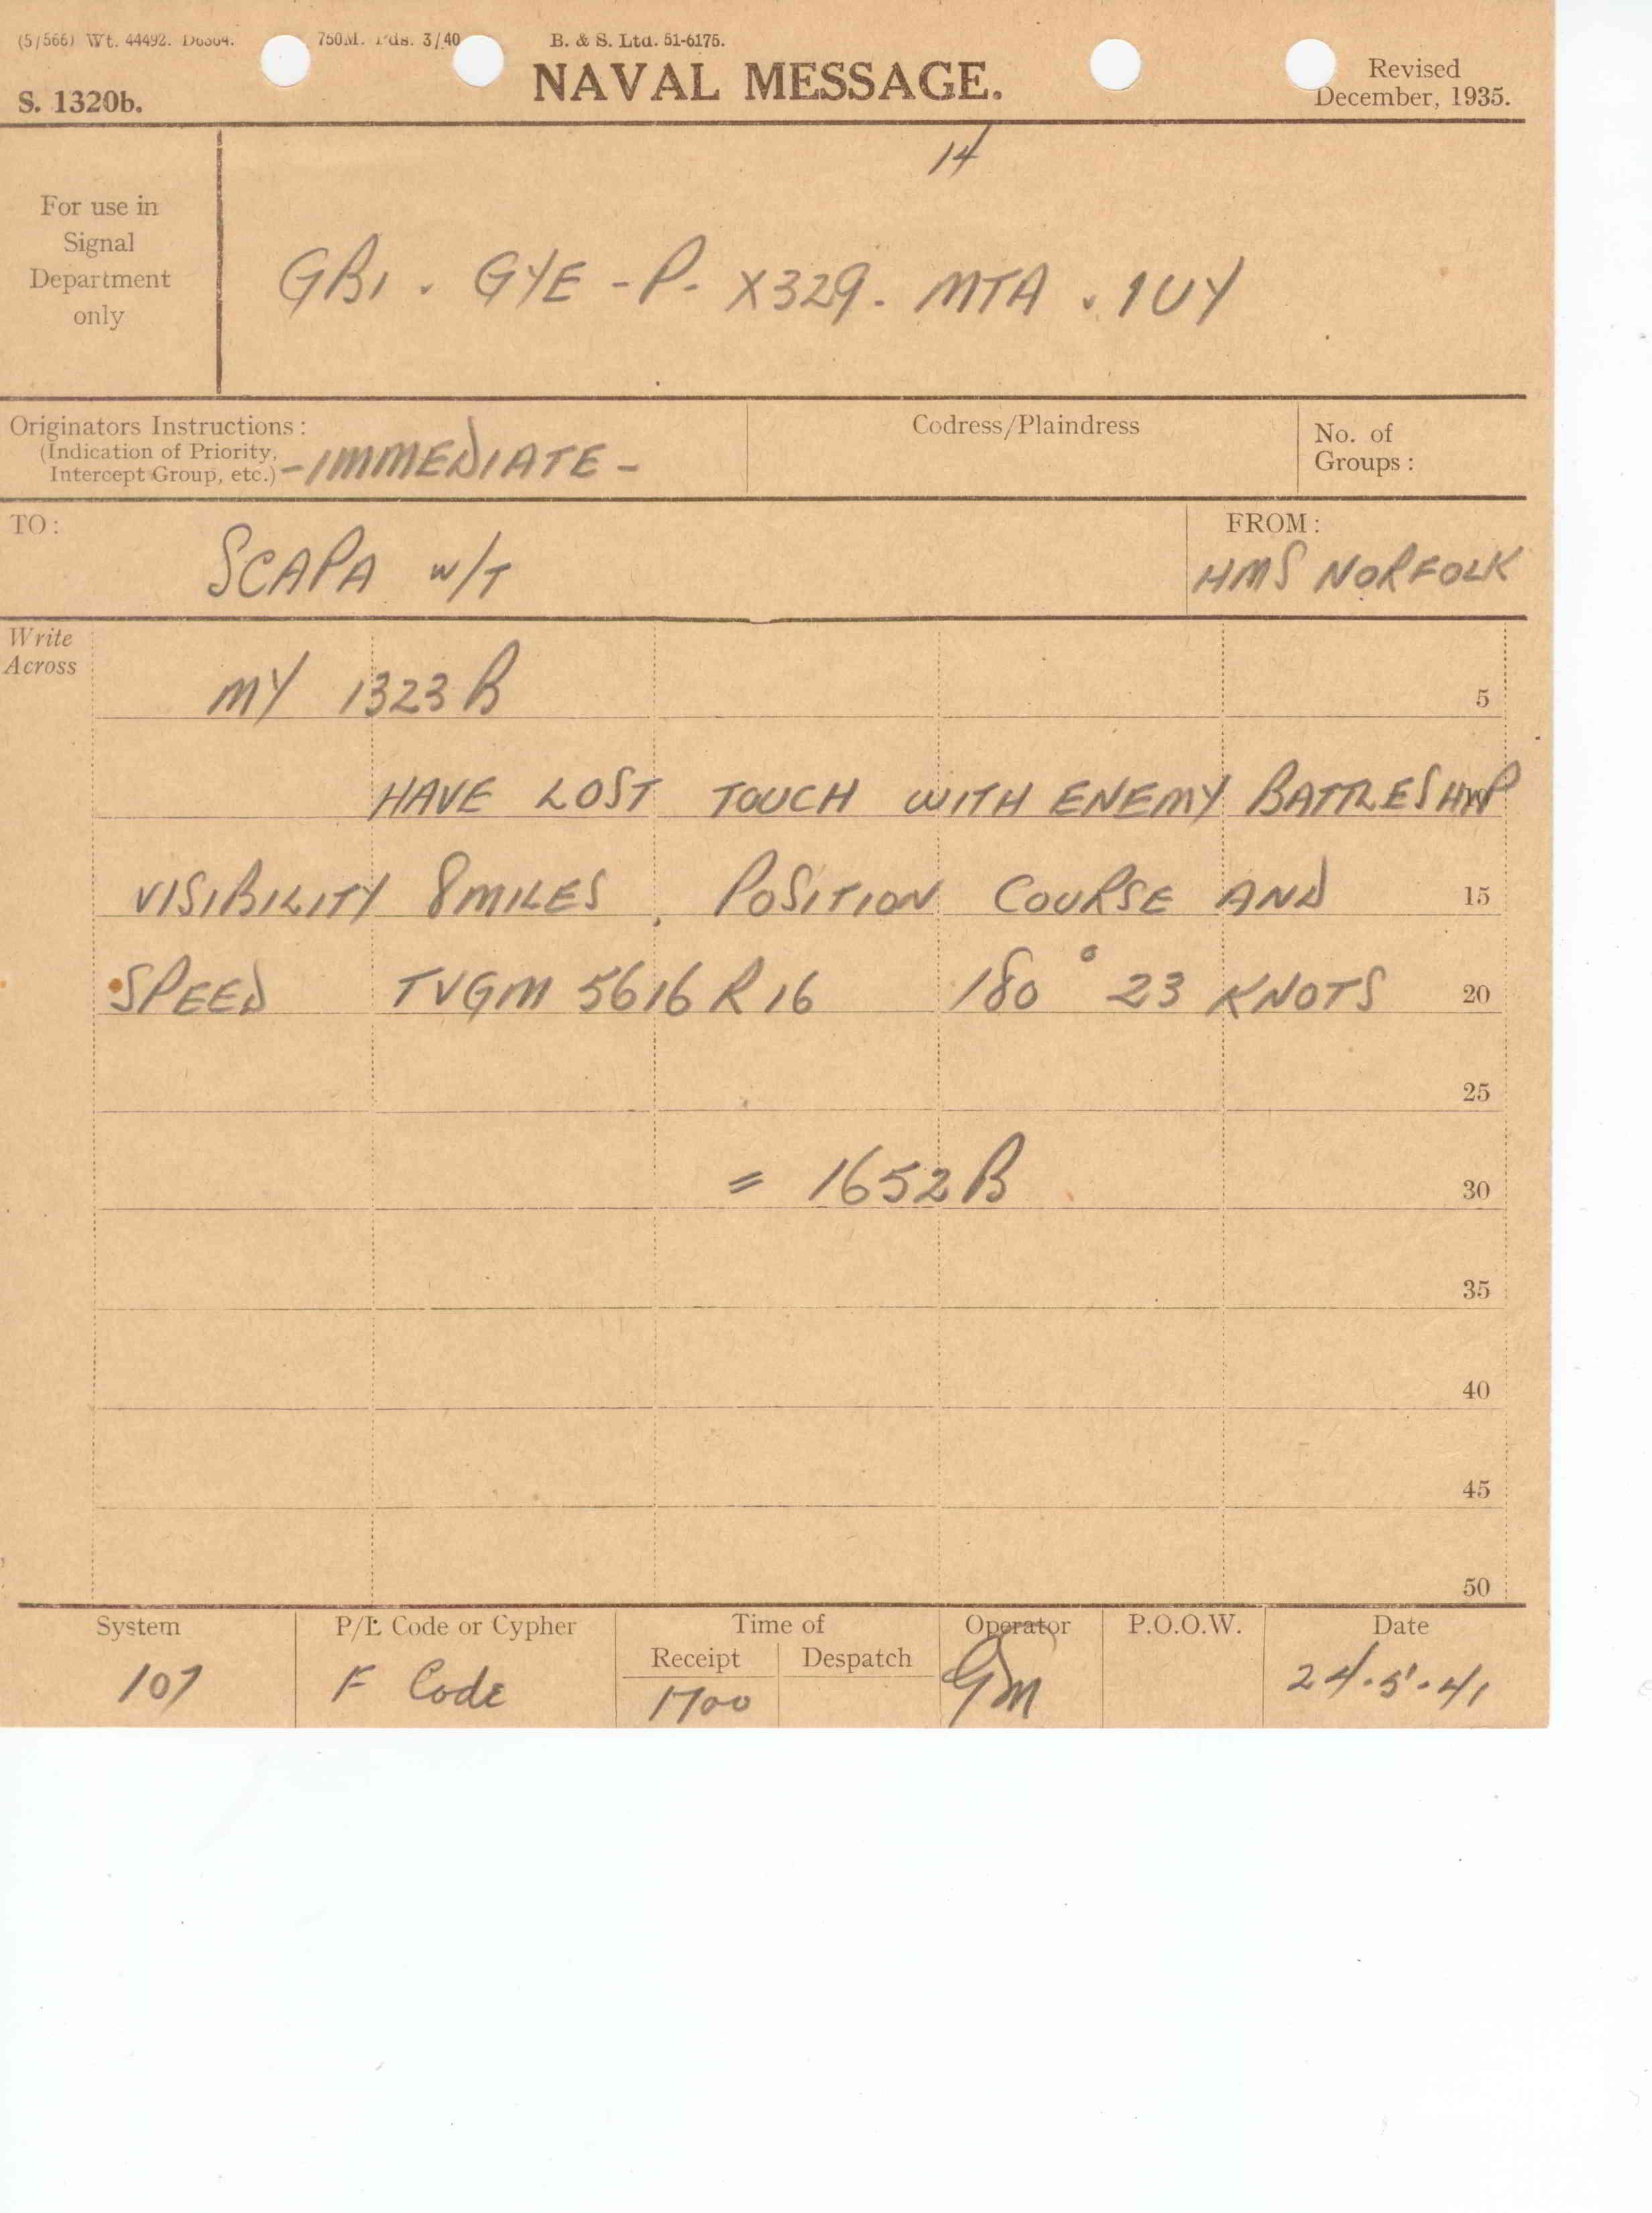 (5/566) Wt. 44492. 750M. 3/40 B. & S. Ltd. 51-6175.
S. 1320b. NAVAL MESSAGE. Revised December, 1935.
14
For use in
Signal
Department
only
GB1 . GYE - P - X329 - MTA . 1UY
Originators Instructions :
(Indication of Priority,
Intercept Group, etc.) - IMMEDIATE -
Codress/Plaindress
No. of
Groups :
TO : SCAPA W/T
FROM :
HMS NORFOLK
Write
Across
MY 1323 B 5
HAVE LOST TOUCH WITH ENEMY BATTLESHIP
VISIBILITY 8 MILES . POSITION COURSE AND 15
SPEED TVGM 5616 R 16 180° 23 KNOTS 20
25
= 1652 B 30
35
40
45
50
System P/L Code or Cypher Time of Operator P.O.O.W. Date
Receipt Despatch
107 F Code 1700 GM 24.5.41